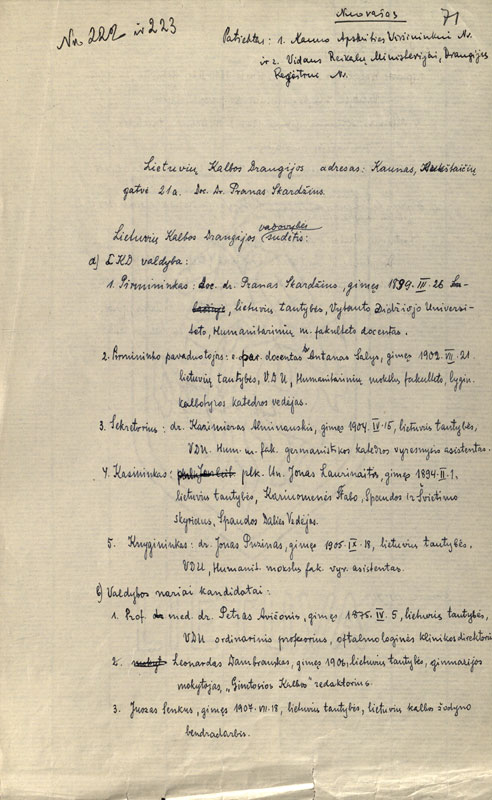 Nuorašos
71
Nr. 222 ir 223
Patiektas: 1. Kauno Apskrities Viršininkui Nr.
ir 2. Vidaus Reikalų Ministerijai, Draugijos
Registrui Nr.
Lietuvių Kalbos Draugijos adresas: Kaunas, Aukštaičių
gatvė 21a. Doc. Dr. Pranas Skardžius.
Lietuvių Kalbos Draugijos vadovybės sudėtis:
a) LKD valdyba:
1. Pirmininkas: doc. dr. Pranas Skardžius, gimęs 1899.III.26
, lietuvių tautybės, Vytauto Didžiojo Universi-
teto, Humanitarinių m. fakulteto docentas.
2. Pirmininko pavaduotojas: e. docentas dr Antanas Salys, gimęs 1902.VII.21.
lietuvių tautybės, V.D.U, Humanitarinių mokslų fakulteto, lygin.
kalbotyros katedros vedėjas.
3. Sekretorius: dr. Kazimieras Alminauskis, gimęs 1904.IV.15, lietuvių tautybės,
VDU. Hum. m. fak. germanistikos katedros vyresnysis asistentas.
4. Kasininkas: plk. ltn. Jonas Laurinaitis, gimęs 1894.II.1,
lietuvių tautybės, Kariuomenės Štabo, Spaudos ir Švietimo
Skyriaus, Spaudos Dalies Vedėjas.
5. Knygininkas: dr. Jonas Puzinas, gimęs 1905.IX.18, lietuvių tautybės.
VDU, Humanit. mokslų fak. vyr. asistentas.
b) Valdybos nariai kandidatai:
1. Prof. med. dr. Petras Avižonis, gimęs 1875.IV.5, lietuvių tautybės,
VDU. ordinarinis profesorius, oftalmologinės klinikos direktorius
2. Leonardas Dambrauskas, gimęs 1906, lietuvių tautybės, gimnazijos
mokytojas, „Gimtosios Kalbos" redaktorius.
3. Juozas Senkus, gimęs 1907.VII.18, lietuvių tautybės, lietuvių kalbos žodyno
bendradarbis.